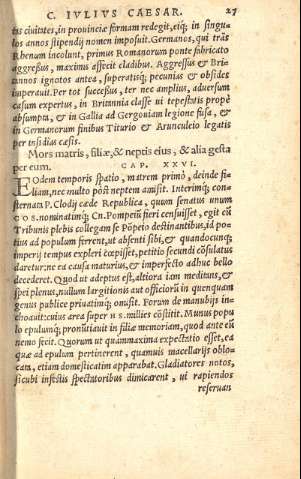 C. IVLIVS CAESAR. 27
tis ciuitates, in prouinciæ formam redegit, eiq; in singu-
los annos stipendij nomen imposuit. Germanos, qui trãs
Rhenum incolunt, primus Romanorum ponte fabricato
aggressus, maximis affecit cladibus. Aggressus & Bri-
annos ignotos antea, superatisq; pecunias & obsides
imperauit. Per tot successus, ter nec amplius, aduersum
casum expertus, in Britannia classe ui tepestatis propè
absumpta, & in Gallia ad Gergoniam legione fusa, &
in Germanorum finibus Titurio & Arunculeio legatis
per insidias cæsis.
Mors matris, filiæ, & neptis eius, & alia gesta
per eum. CAP. XXVI.
EOdem temporis spatio, matrem primò, deinde fi-
liam, nec multo pòst neptem amisit. Interimq; con-
sternata P. Clodij cæde Republica, quum senatus unum
COS. nominatimq; Cn. Pompeiũ fieri censuisset, egit cũ
Tribunis plebis collegam se Põpeio destinantibus, id po-
tius ad populum ferrent, ut absenti sibi, & quandocunq;
imperij tempus expleri cœpisset, petitio secundi cõsulatus
daretur: ne ea causa maturius, & imperfecto adhuc bello
decederet. Quod ut adeptus est, altiora iam meditans, &
spei plenus, nullum largitionis aut officiorũ in quenquam
genus publice priuatimq; omisit. Forum de manubijs in-
choauit: cuius area super HS. milies cõstitit. Munus popu
lo epulumq; pronũtiauit in filiæ memoriam, quod ante eũ
nemo fecit. Quorum ut quammaxima expectatio esset, ea
quæ ad epulum pertinerent, quamuis macellarijs oblo-
cata, etiam domesticatim apparabat. Gladiatores notos,
sicubi infestis spectatoribus dimicarent, ui rapiendos
reseruan